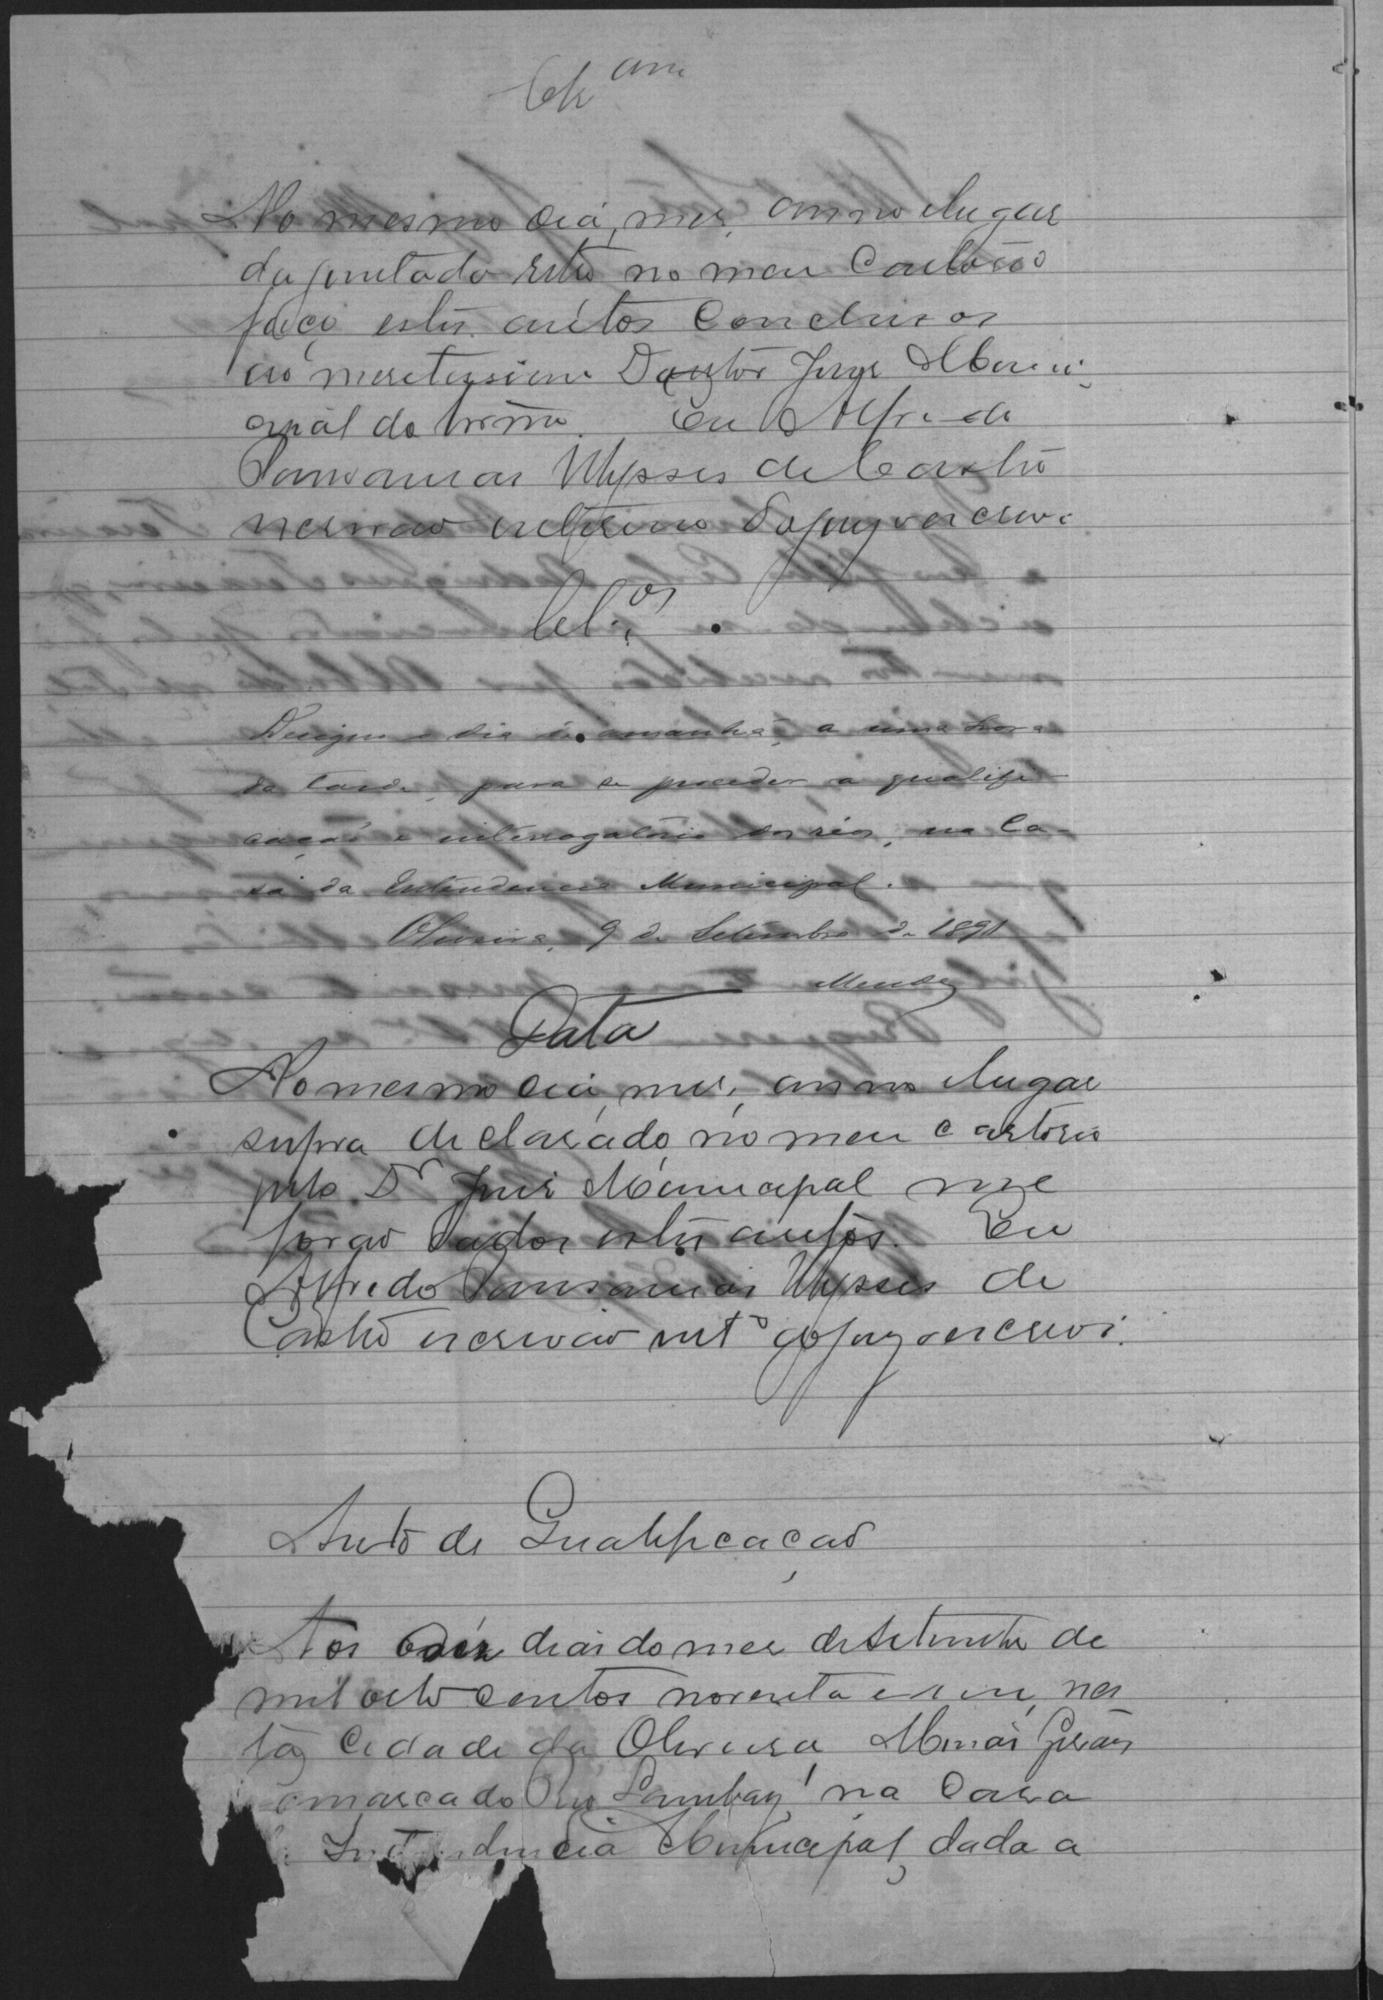 No mesmo dia, mez, anno e lugar
da juntada retro no meu Cartorio
faço estes autos Conclusos
ao meretissimo Doutor Juiz Munici-
cipal do termo. Eu Alfredo
Pausanias Ulysses de Castro
escrivão interino o fiz e escrevi.
Cl.os
Designo o dia de amanhã, a uma hora
da tarde, para se proceder a qualifi-
cação e interrogatorio dos réos, na Ca-
sa da Intendencia Municipal.
Oliveira, 9 de Setembro de 1891
Mendes
Data
No mesmo dia, mez, anno e lugar
supra declarado, no meu cartorio
pelo Dr Juiz Municipal me
forão dados estes autos. Eu
Alfredo Pausanias Ulysses de
Castro escrivão intº que o fiz e escrevi.
Auto de Qualificação
Aos dez dias do mez de Setembro de
mil oito centos noventa e um, nes
ta Cidade da Oliveira, Minas Geraes
omarca do Rio Lambary, na Casa
Intendencia Municipal, dada a